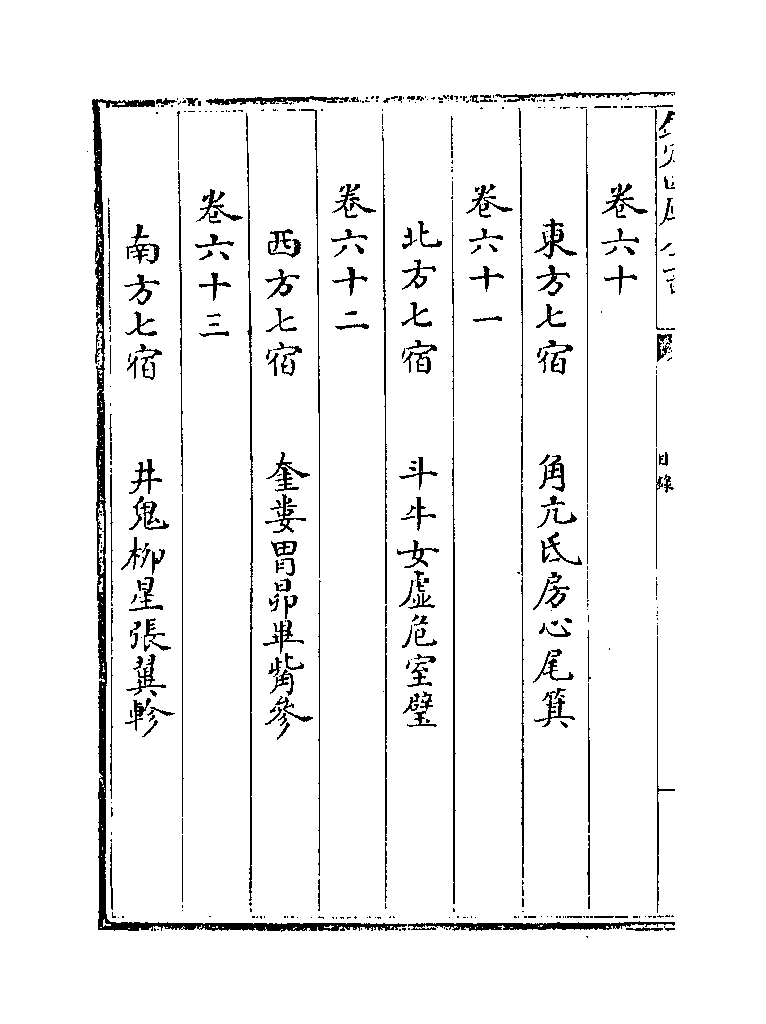 卷六十
東方七宿 角亢氐房心尾箕
卷六十一
北方七宿 斗牛女虛危室壁
卷六十二
西方七宿 奎婁胃昴畢觜參
卷六十三
南方七宿 井鬼柳星張翼軫
目錄